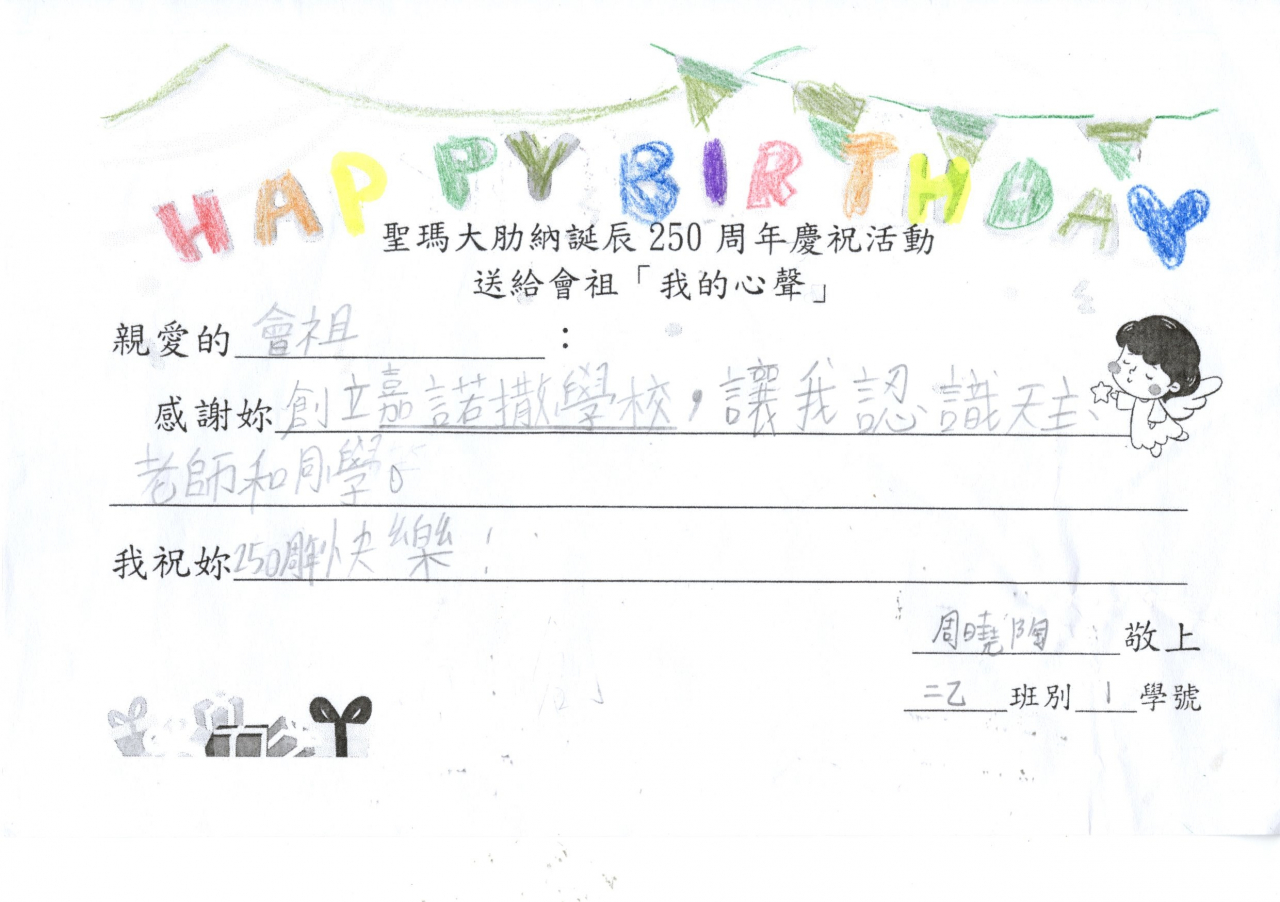 HAPPY BIRTHDAY
聖瑪大肋納誕辰 250 周年慶祝活動
送給會祖「我的心聲」
親愛的會祖：
感謝妳創立嘉諾撒學校，讓我認識天主、
老師和同學。
我祝妳250周年快樂！
周曉陶 敬上
二乙 班別 1 學號